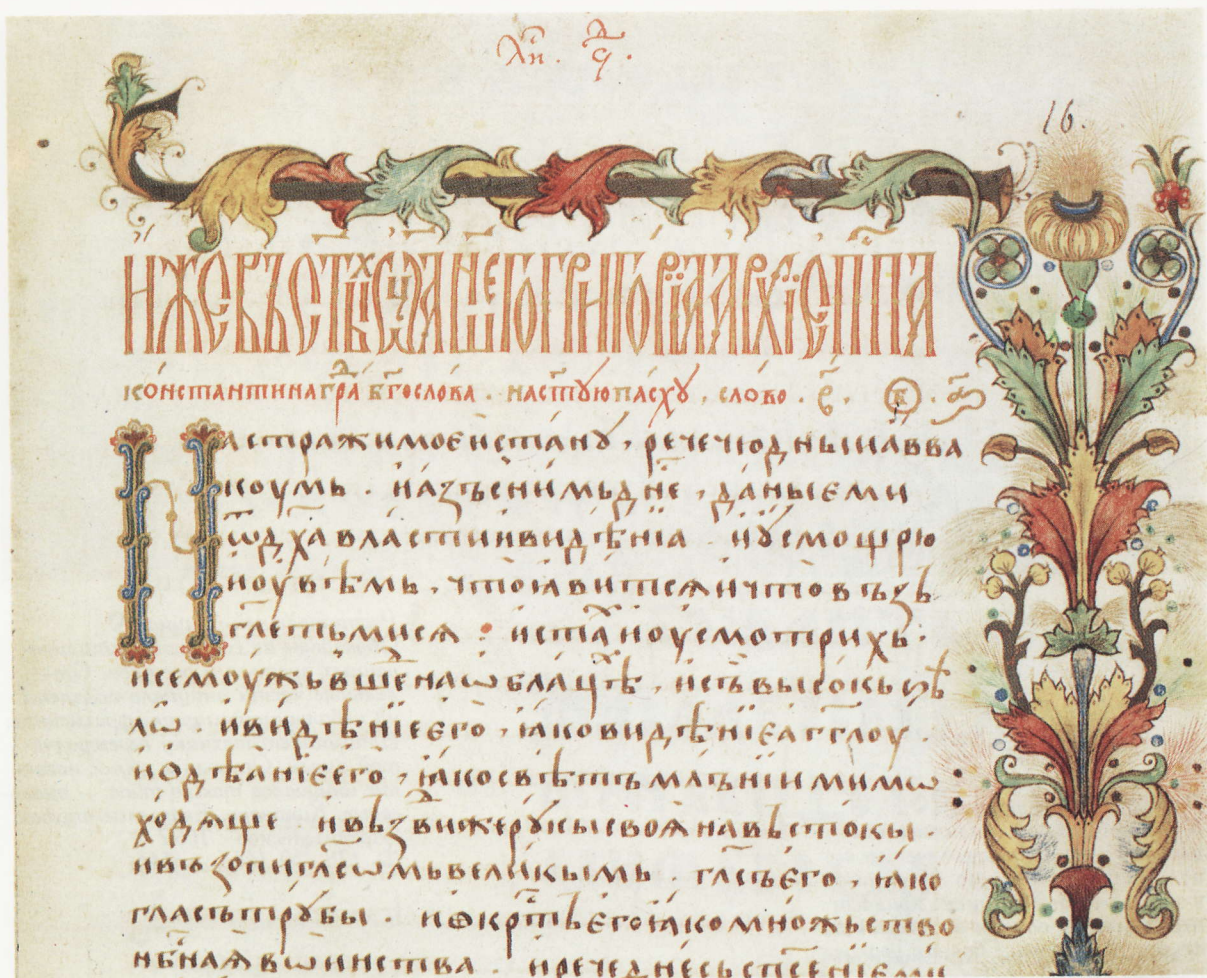 16.
иже въ ст҃хъ ѡц҃а нш҃его григорїа архїеп҃па
константина гра́д бг҃ослова . на ст҃ую пасху , слово .
На стражи моей стану , рече чюдныи авва
коумь . и азъ с ними дн҃е , даный ми
ѿ дх҃а власти и видѣнїа и усмощрю
и оувѣмь , что ꙗвитсѧ и что въз
гл҃етьмисѧ : и ста́х и оусмотрихъ .
и се моужь вшед на ѡблацѣхъ , и съ высокъ ѕѣ
лѡ . и видѣнїе его̀ , ꙗко видѣнїе агг҃лоу .
и одѣанїе его , ꙗкосвѣтъ млънїи мимѡ
ходѧще . и възвиже рукы своѧ на въстокы .
и възопи гласѡмь великымь . глс҃ъ его , ꙗко
гласъ трубы . и ѻкр҃тъ его ꙗко множьство
нб҃наѧ вѡинства . и рече днесь сп҃сенїе ми